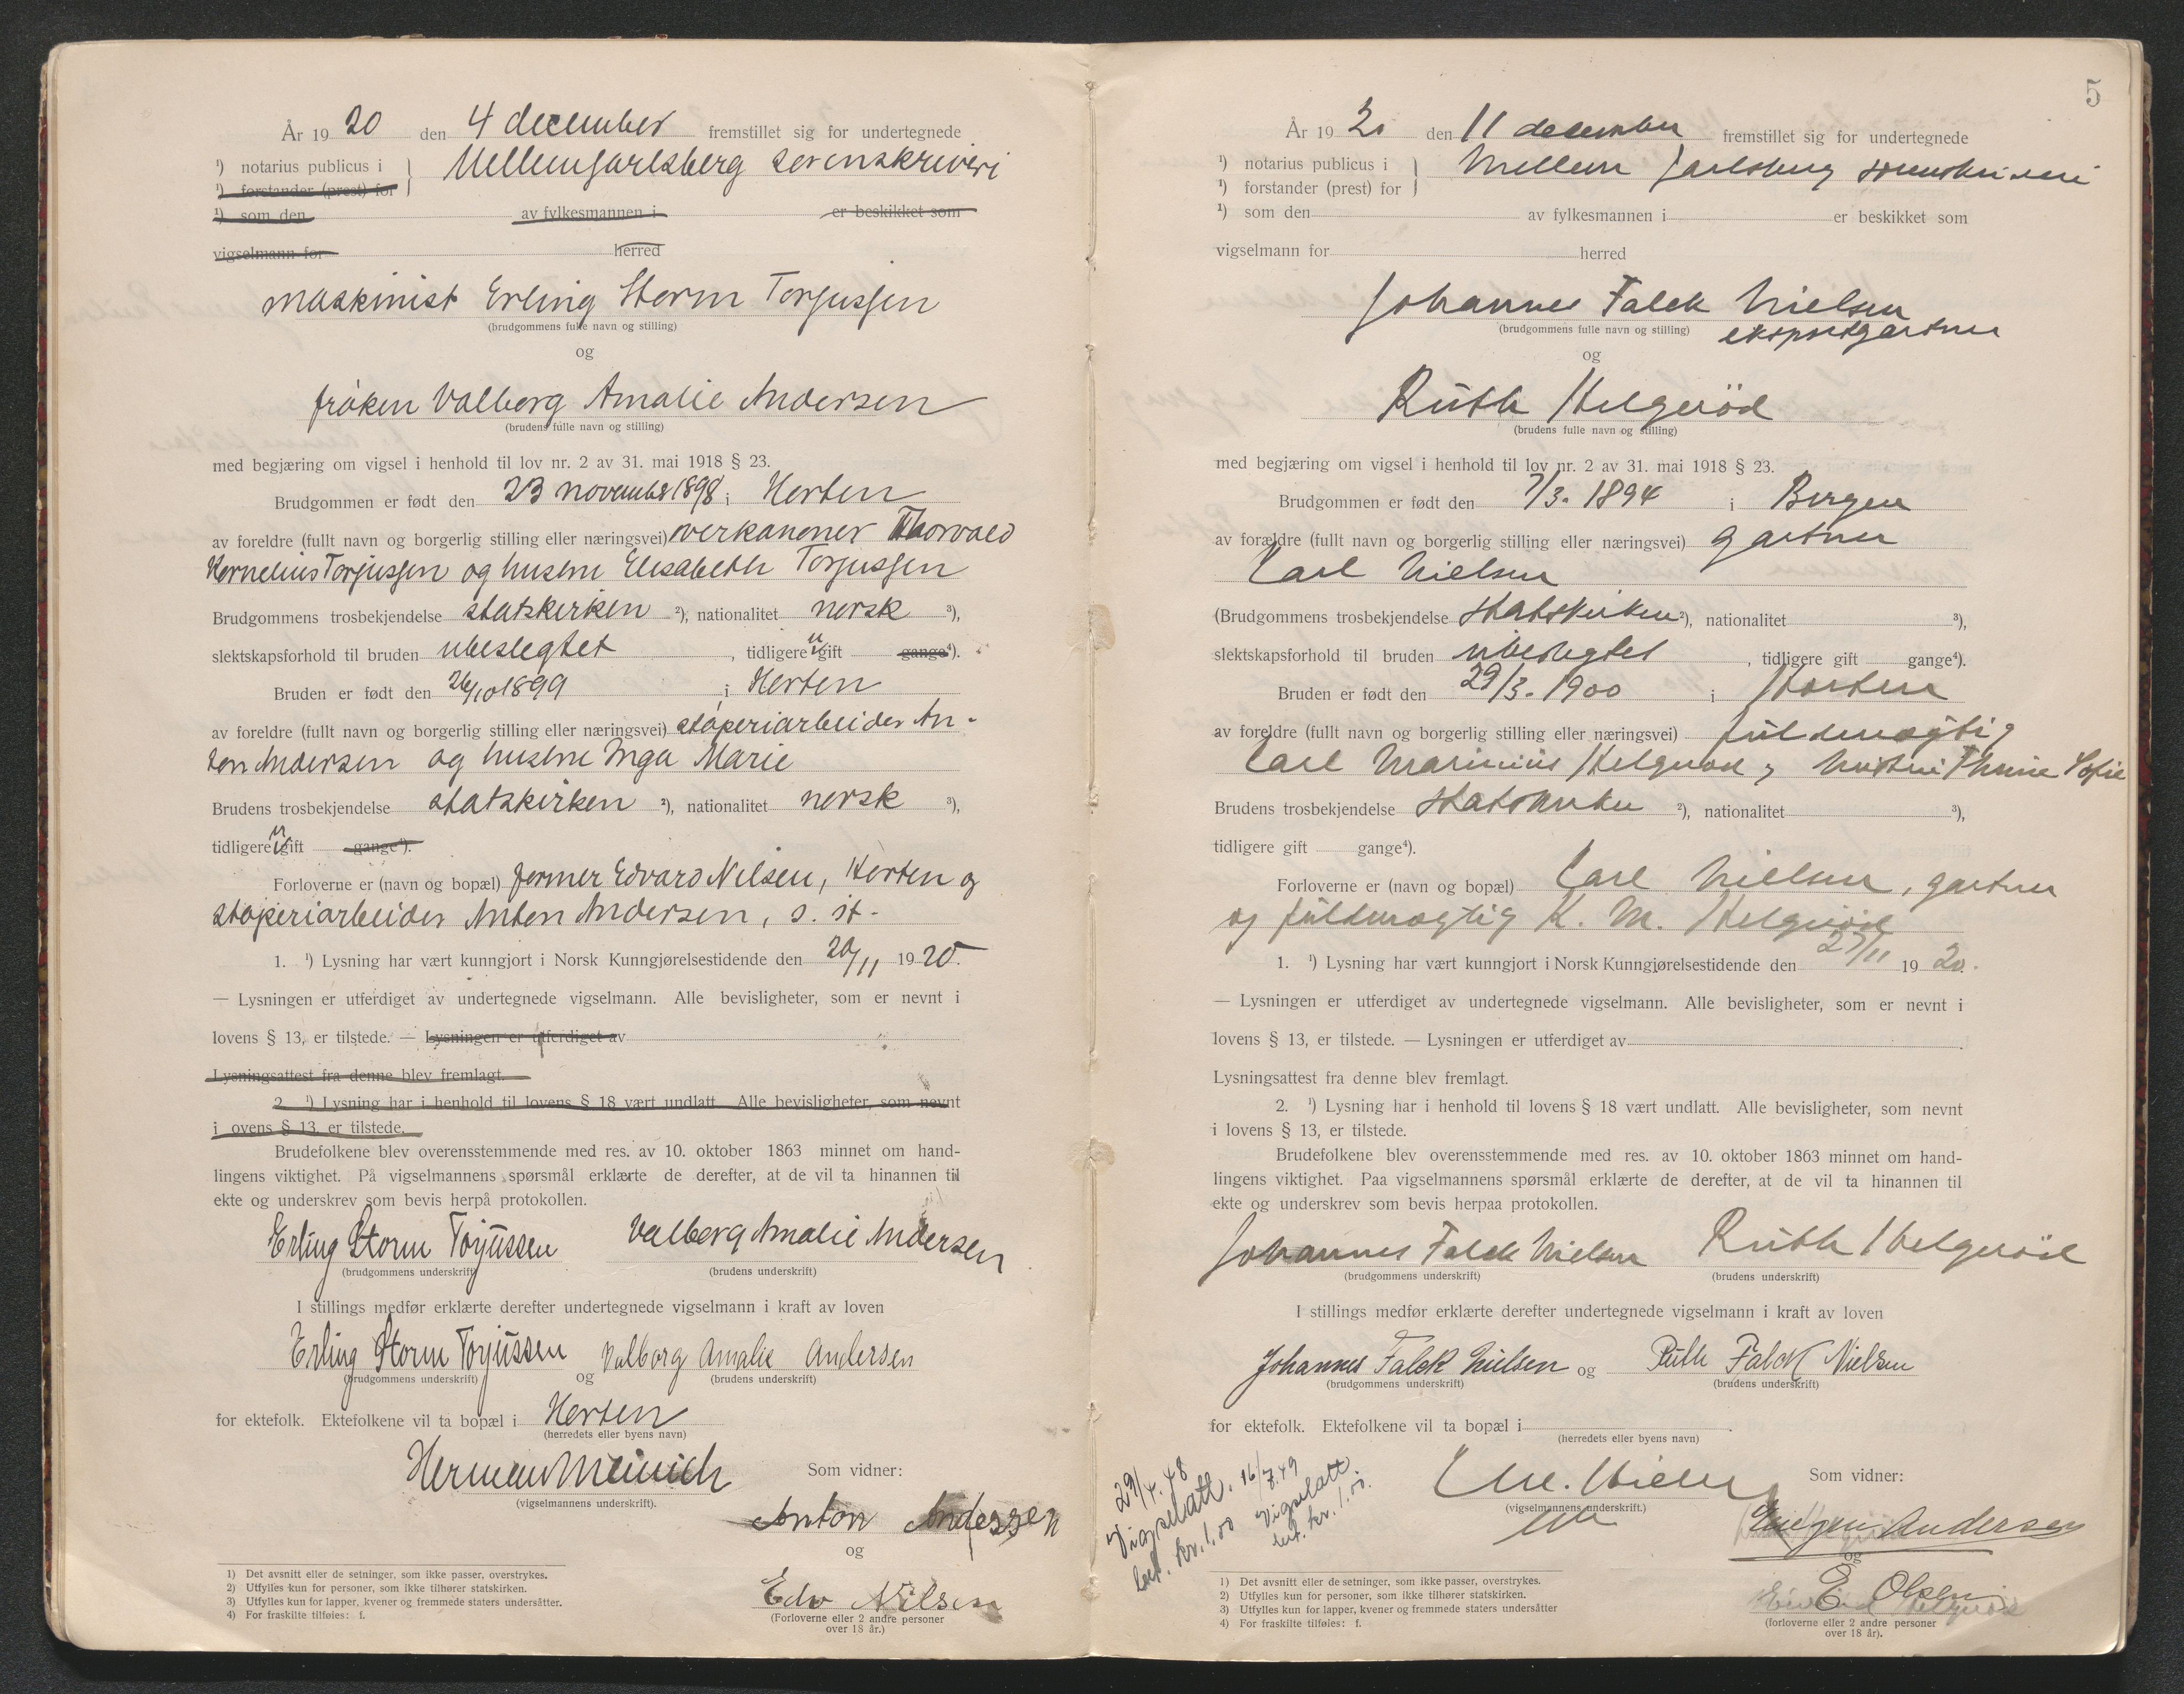 År 19 20 den 4 december fremstillet sig for undertegnede
¹) notarius publicus i } Mellemjarlsberg sorenskriveri
¹) forstander (prest) for
¹) som den av fylkesmannen i er beskikket som
vigselmann for herred
maskinist Erling Storm Torjussen
(brudgommens fulle navn og stilling)
og
frøken Valborg Amalie Andersen
(brudens fulle navn og stilling)
med begjæring om vigsel i henhold til lov nr. 2 av 31. mai 1918 § 23.
Brudgommen er født den 23 november 1898 i Horten
av foreldre (fullt navn og borgerlig stilling eller næringsvei) overkanoner Thorvald
Kornelius Torjussen og hustru Elisabeth Torjussen
Brudgommens trosbekjendelse statskirken ²), nationalitet norsk ³),
slektskapsforhold til bruden ubeslegtet , tidligere ugift gange⁴).
Bruden er født den 26/10 1899 i Horten
av foreldre (fullt navn og borgerlig stilling eller næringsvei) støperiarbeider An-
ton Andersen og hustru Inga Marie
Brudens trosbekjendelse statskirken ²), nationalitet norsk ³),
tidligere ugift gange⁴).
Forloverne er (navn og bopæl) former Edvard Nilsen, Horten og
støperiarbeider Anton Andersen, s. st.
1. ¹) Lysning har vært kunngjort i Norsk Kunngjørelsestidende den 20/11 19 20.
— Lysningen er utferdiget av undertegnede vigselmann. Alle bevisligheter, som er nevnt i
lovens § 13, er tilstede. — Lysningen er utferdiget av
Lysningsattest fra denne blev fremlagt.
2. ¹) Lysning har i henhold til lovens § 18 vært undlatt. Alle bevisligheter, som nevnt
i ovens § 13, er tilstede.
Brudefolkene blev overensstemmende med res. av 10. oktober 1863 minnet om hand-
lingens viktighet. På vigselmannens spørsmål erklærte de derefter, at de vil ta hinannen til
ekte og underskrev som bevis herpå protokollen.
Erling Storm Torjussen Valborg Amalie Andersen
(brudgommens underskrift) (brudens underskrift)
I stillings medfør erklærte derefter undertegnede vigselmann i kraft av loven
Erling Storm Torjussen og Valborg Amalie Andersen
(brudgommens underskrift) (brudens underskrift)
for ektefolk. Ektefolkene vil ta bopæl i Horten
(herredets eller byens navn)
Herman Meinich
(vigselmannens underskrift).
Som vidner:
Anton Andersen
og
Edv Nilsen
(Forloverne eller 2 andre personer
over 18 år.)
1) Det avsnitt eller de setninger, som ikke passer, overstrykes.
2) Utfylles kun for personer, som ikke tilhører statskirken.
3) Utfylles kun for lapper, kvener og fremmede staters undersåtter.
4) For fraskilte tilføies: f.
5
År 19 20 den 11 december fremstillet sig for undertegnede
¹) notarius publicus i } Mellem Jarlsberg sorenskriveri
¹) forstander (prest) for
¹) som den av fylkesmannen i er beskikket som
vigselmann for herred
Johannes Falck Nielsen
(brudgommens fulle navn og stilling) eksportgartner
og
Ruth Helgerød
(brudens fulle navn og stilling)
med begjæring om vigsel i henhold til lov nr. 2 av 31. mai 1918 § 23.
Brudgommen er født den 7/3. 1894 i Bergen
av forældre (fullt navn og borgerlig stilling eller næringsvei) gartner
Carl Nielsen
(Brudgommens trosbekjendelse statskirken ²), nationalitet ³),
slektskapsforhold til bruden ubeslegtet , tidligere gift gange⁴).
Bruden er født den 29/3. 1900 i Horten
av foreldre (fullt navn og borgerlig stilling eller næringsvei) fuldmægtig
Carl Marinius Helgerød og hustru Sofie
Brudens trosbekjendelse statskirken ²), nationalitet ³),
tidligere gift gange⁴).
Forloverne er (navn og bopæl) Carl Nielsen, gartner
og fuldmægtig K. M. Helgerød
1. ¹) Lysning har vært kunngjort i Norsk Kunngjørelsestidende den 27/11 19 20.
— Lysningen er utferdiget av undertegnede vigselmann. Alle bevisligheter, som er nevnt i
lovens § 13, er tilstede. — Lysningen er utferdiget av
Lysningsattest fra denne blev fremlagt.
2. ¹) Lysning har i henhold til lovens § 18 vært undlatt. Alle bevisligheter, som nevnt
i lovens § 13, er tilstede.
Brudefolkene blev overensstemmende med res. av 10. oktober 1863 minnet om hand-
lingens viktighet. Paa vigselmannens spørsmål erklærte de derefter, at de vil ta hinannen til
ekte og underskrev som bevis herpaa protokollen.
Johannes Falck Nielsen Ruth Helgerød
(brudgommens underskrift) (brudens underskrift)
I stillings medfør erklærte derefter undertegnede vigselmann i kraft av loven
Johannes Falck Nielsen og Ruth Falck Nielsen
(brudgommens underskrift) (brudens underskrift)
for ektefolk. Ektefolkene vil ta bopæl i
(herredets eller byens navn)
29/4. 48
Vigselatt.
bet. kr. 1,00
16/7. 49
Vigselatt.
bet. kr. 1.00.
(vigselmannens underskrift.)
Som vidner:
Andersen
og
E Olsen
(forloverne eller 2 andre personer
over 18 år).
1) Det avsnitt eller de setninger, som ikke passer, overstrykes.
2) Utfylles kun for personer, som ikke tilhører statskirken.
3) Utfylles kun for lapper, kvener og fremmede staters undersåtter
4) For fraskilte tilføies: f.